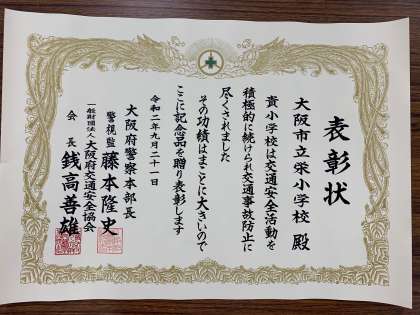 表彰状
大阪市立栄小学校 殿
貴小学校は交通安全活動を
積極的に続けられ交通事故防止に
尽くされました
その功績はまことに大きいので
ここに記念品を贈り表彰します
令和二年九月二十一日
大阪府警察本部長
警視監 藤本隆史
一般財団法人 大阪府交通安全協会
会長 銭高善雄